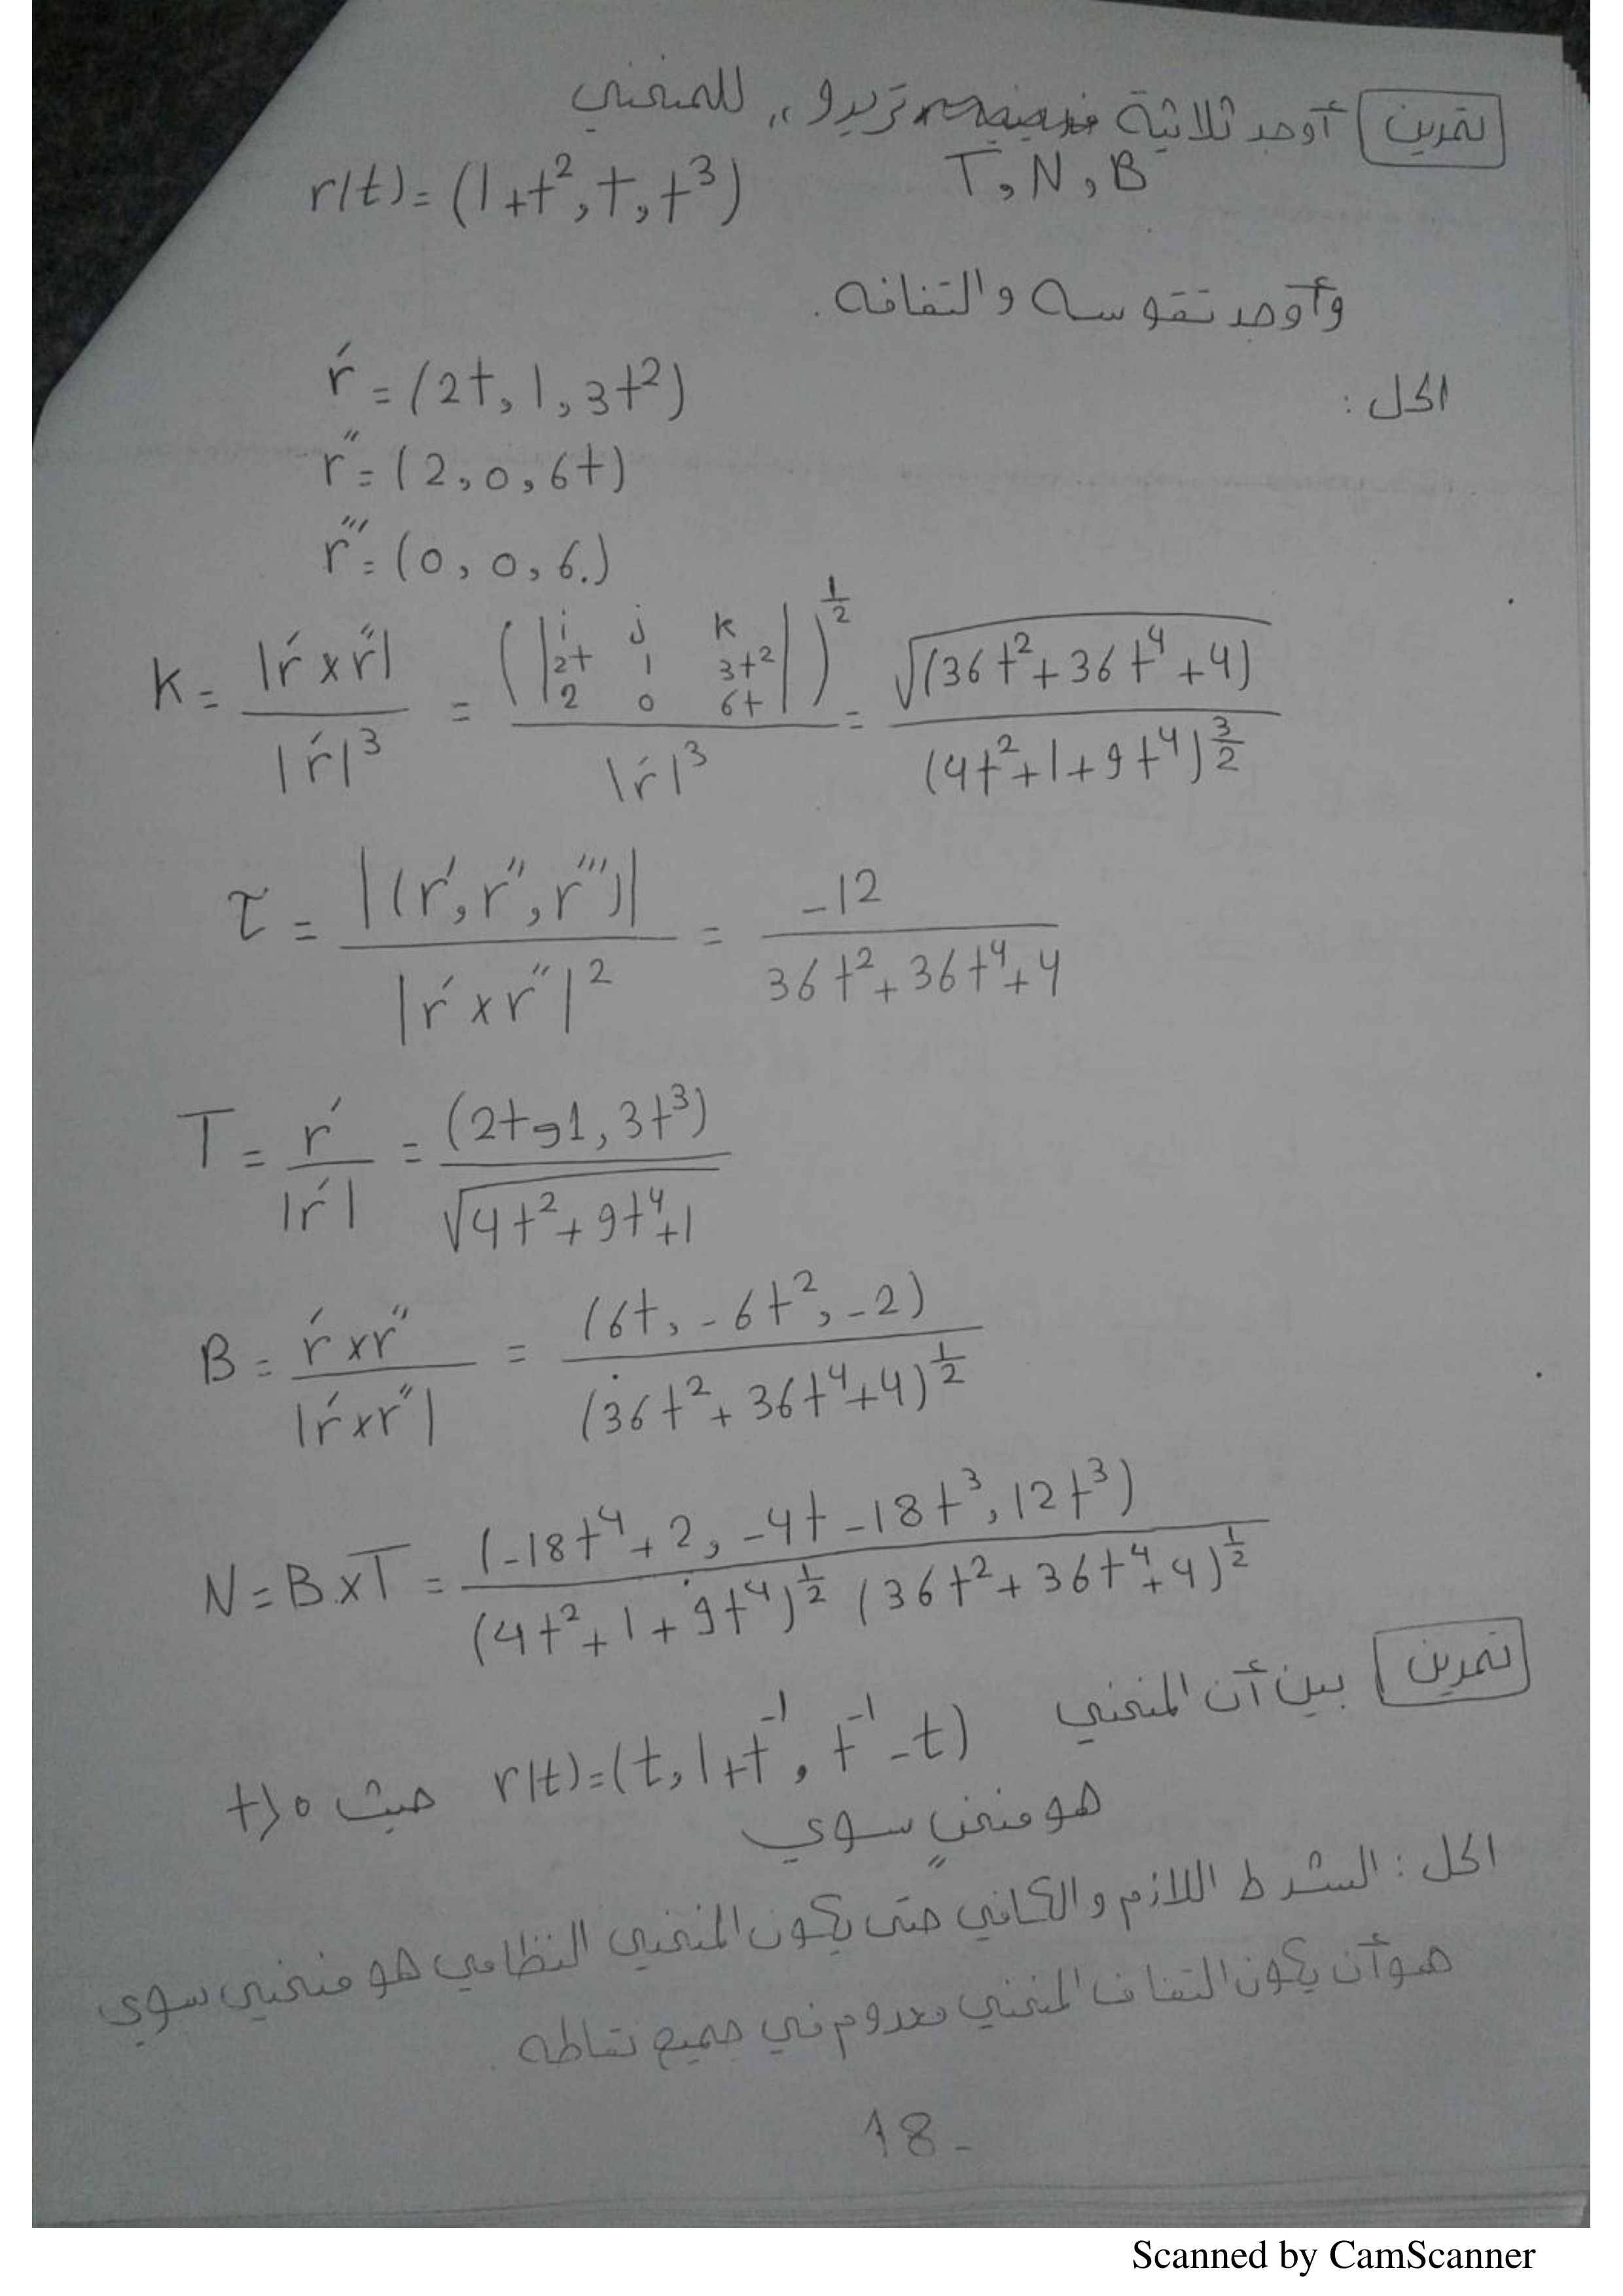 تمرين أوجد ثلاثية تريدو،، للمنحني
T, N, B r(t) = (1+t², t, t³)
وأوجد تقوسه والتفافه.
الحل:
r' = (2t, 1, 3t²)
r'' = (2, 0, 6t)
r''' = (0, 0, 6.)
K = |r' x r''| / |r'|³ = (|i j k; 2t 1 3t²; 2 0 6t|)^{1/2} / |r'|³ = √(36t²+36t⁴+4) / (4t²+1+9t⁴)^{3/2}
τ = |(r', r'', r''')| / |r' x r''|² = -12 / 36t²+36t⁴+4
T = r' / |r'| = (2t, 1, 3t³) / √4t²+9t⁴+1
B = r' x r'' / |r' x r''| = (6t, -6t², -2) / (36t²+36t⁴+4)^{1/2}
N = B x T = (-18t⁴+2, -4t-18t³, 12t³) / (4t²+1+9t⁴)^{1/2} (36t²+36t⁴+4)^{1/2}
تمرين بين أن المنحني
r(t) = (t, 1+t⁻¹, t⁻¹-t) حيث t>0
هو منحنٍ سوي
الحل: الشرط اللازم والكافي حتى يكون المنحني النظامي هو منحني سوي
هو أن يكون التفاف المنحني معدوم في جميع نقاطه.
18-
Scanned by CamScanner